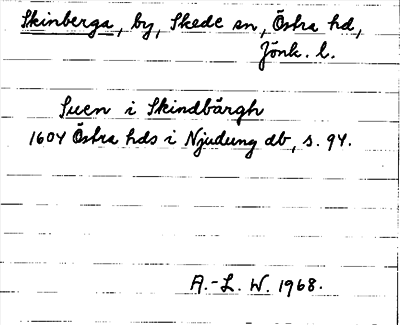 Skinberga, by, Skede sn, Östra hd,
Jönk. l.
Suen i Skindbärgh
1604 Östra hds i Njudung db, s. 94.
A.-L. W. 1968.